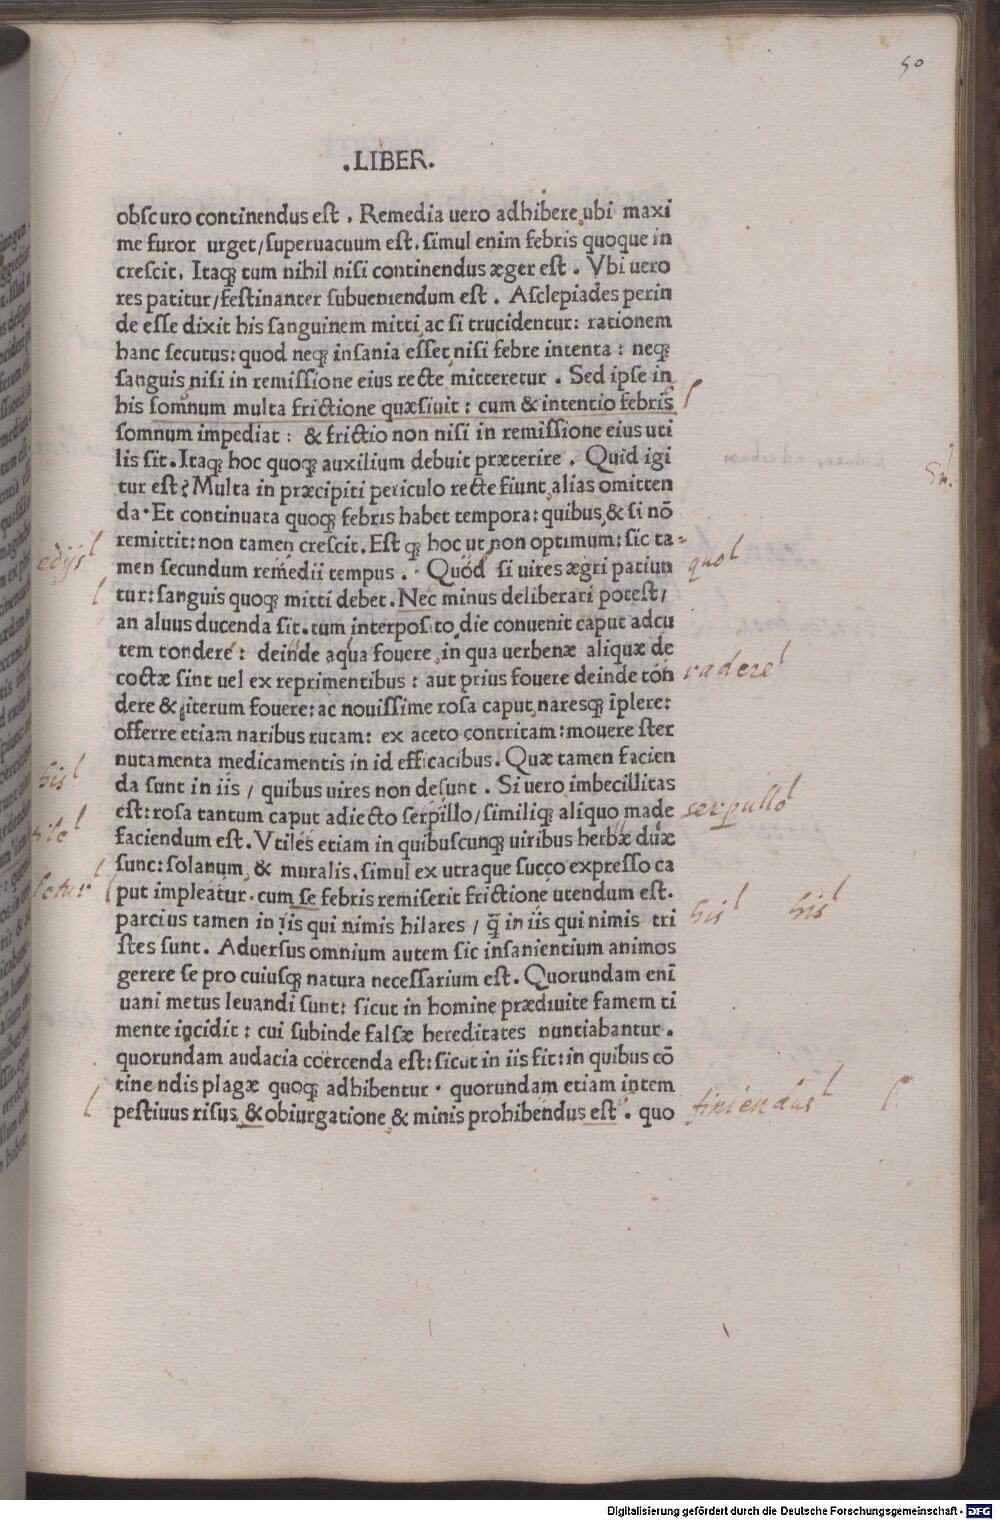 50
.LIBER.
obscuro continendus est . Remedia uero adhibere ubi maxi
me furor urget/superuacuum est. simul enim febris quoque in
crescit. Itaqꝫ tum nihil nisi continendus æger est . Vbi uero
res patitur/festinanter subueniendum est . Asclepiades perin
de esse dixit his sanguinem mitti ac si trucidentur: rationem
hanc secutus: quod neqꝫ insania esset nisi febre intenta : neqꝫ
sanguis nisi in remissione eius recte mitteretur . Sed ipse in
his somnum multa frictione quæsiuit : cum & intentio febris
somnum impediat : & frictio non nisi in remissione eius uti
lis sit. Itaqꝫ hoc quoqꝫ auxilium debuit præterire . Quid igi
tur est? Multa in præcipiti periculo recte fiunt alias omitten
da. Et continuata quoqꝫ febris habet tempora: quibus & si nō
remittit: non tamen crescit. Est qꝫ hoc ut non optimum: sic ta-
men secundum remedii tempus . Quod si uires ægri patiun
tur: sanguis quoqꝫ mitti debet. Nec minus deliberari potest/
an aluus ducenda sit. tum interposito die conuenit caput adcu
tem tondere : deinde aqua fouere in qua uerbenæ aliquæ de
coctæ sint uel ex reprimentibus : aut prius fouere deinde ton
dere & iterum fouere: ac nouissime rosa caput naresqꝫ īplere:
offerre etiam naribus rutam: ex aceto contritam: mouere ster
nutamenta medicamentis in id efficacibus. Quæ tamen facien
da sunt in iis / quibus uires non desunt . Si uero imbecillitas
est: rosa tantum caput adiecto serpillo/similiqꝫ aliquo made
faciendum est. Vtiles etiam in quibuscunqꝫ uiribus herbæ duæ
sunt: solanum & muralis. simul ex utraque succo expresso ca
put impleatur. cum se febris remiserit frictione utendum est.
parcius tamen in iis qui nimis hilares / q̄ in iis qui nimis tri
stes sunt . Aduersus omnium autem sic insanientium animos
gerere se pro cuiusqꝫ natura necessarium est. Quorundam enī
uani metus leuandi sunt: sicut in homine prædiuite famem ti
mente incidit : cui subinde falsæ hereditates nuntiabantur .
quorundam audacia coercenda est: sicut in iis fit: in quibus cō
tinendis plagæ quoqꝫ adhibentur . quorundam etiam intem
pestiuus risus & obiurgatione & minis prohibendus est . quo
edijs
quo
radere
his
serpullo
his his
finiendus
Digitalisierung gefördert durch die Deutsche Forschungsgemeinschaft - DFG